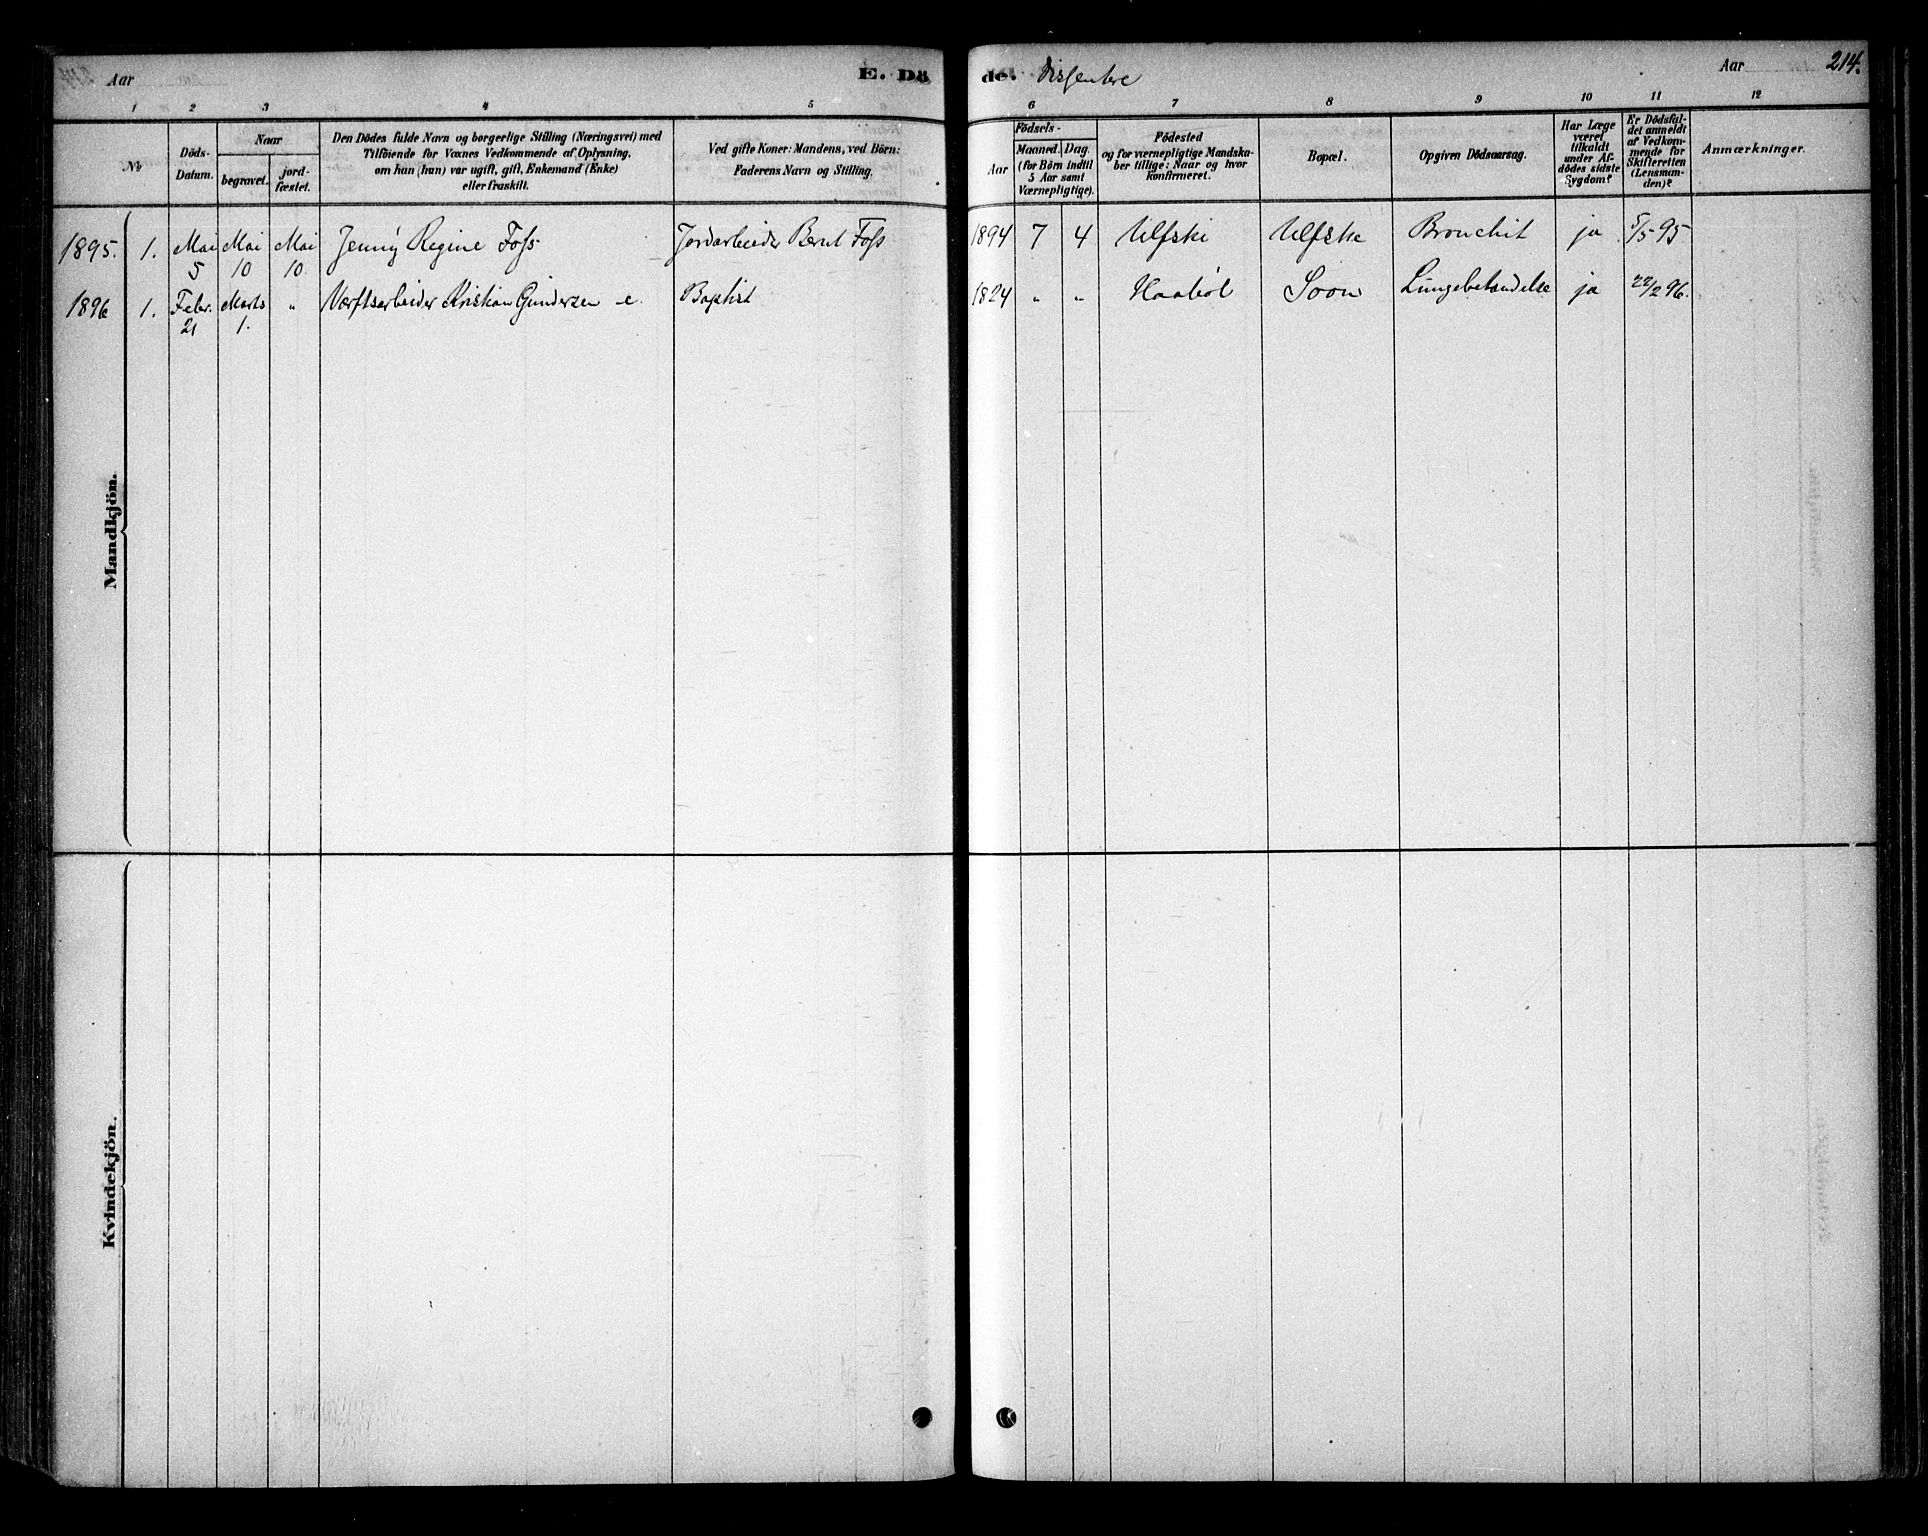 Aar E. Dö de. Dissentere Aar 214.
1 2 3 4 5 6 7 8 9 10 11 12
No
Döds-Datum.
Naar
begravet.
jord-fæstet.
Den Dödes fulde Navn og borgerlige Stilling (Næringsvei) med
Tilföiende for Voxnes Vedkommende af Oplysning,
om han (hun) var ugift, gift, Enkemand (Enke)
eller fraskilt.
Ved gifte Koner: Mandens, ved Börn:
Faderens Navn og Stilling.
Födsels-
Aar
Maaned. Dag.
(for Börn indtil
5 Aar samt
Værnepligtige).
Födested
og for værnepligtige Mandska-
ber tillige: Naar og hvor
konfirmeret.
Bopæl.
Opgiven Dödsaarsag.
Har Læge
været
tilkaldt
under Af-
dödes sidste
Sygdom?
Er Dödsfal-
det anmeldt
af Vedkom-
mende for
Skifteretten
(Lensman-
den)?
Anmærkninger.
1895. 1. Mai 5 Mai 10 Mai 10. Jenny Regine Foss Jordarbeider Bernt Foss 1894 7 4 Ulfski Ulfske Bronchit ja 5/5 95
1896 1. Febr. 21 Marts 1. " Værftsarbeider Kristian Gundersen e. Baptist 1824 " " Haaböl Soon Lungebetændelse ja 22/2 96.
Mandkjön.
Kvindekjön.